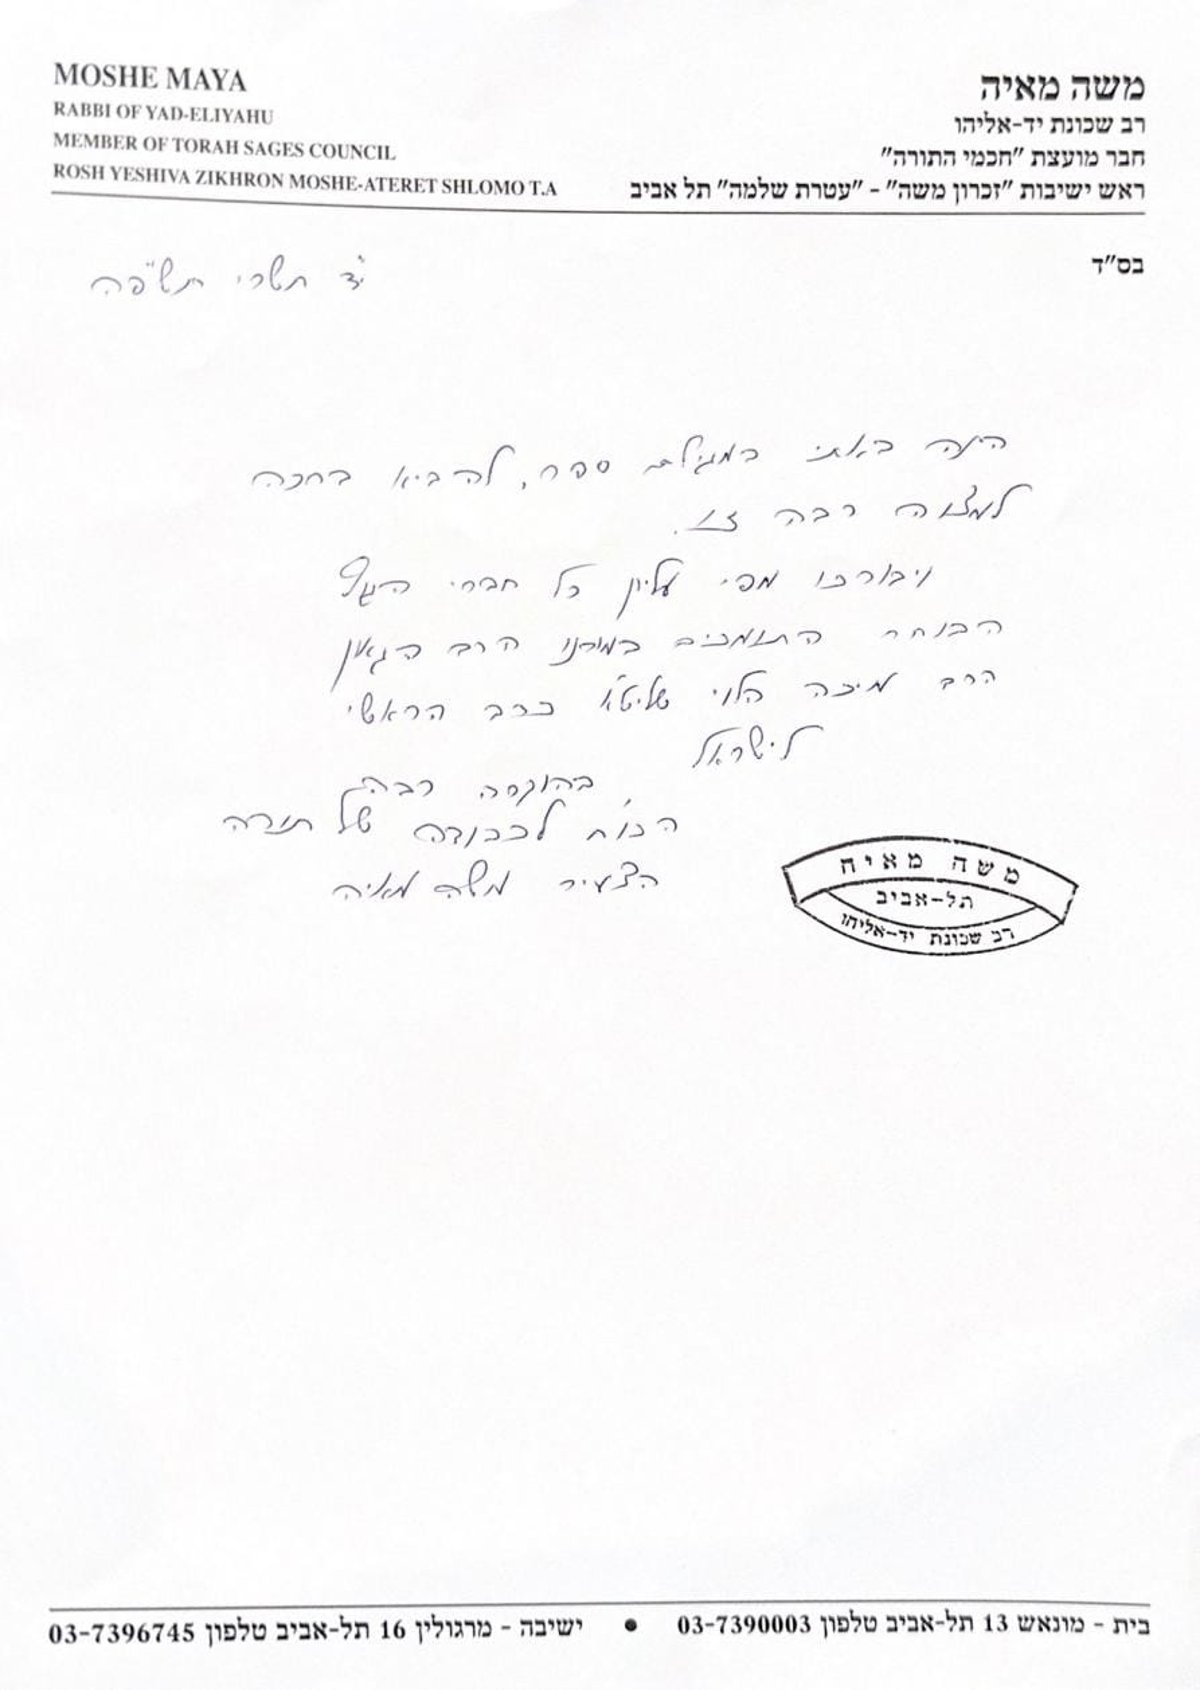 משה מאיה
רב שכונת יד-אליהו
חבר מועצת "חכמי התורה"
ראש ישיבות "זכרון משה" - "עטרת שלמה" תל אביב
MOSHE MAYA
RABBI OF YAD-ELIYAHU
MEMBER OF TORAH SAGES COUNCIL
ROSH YESHIVA ZIKHRON MOSHE-ATERET SHLOMO T.A
בס"ד
י"ד תשרי תשפ"ה
הינה באתי במגילת ספר, להביא ברכה
למצוה רבה זו.
ויבורכו מפי עליון כל חברי הגוף
הבוחר התומכים במורנו הרב הגאון
הרב מיכה הלוי שליט"א כרב הראשי
לישראל
בהוקרה רבה
הכו"ח לכבודה של תורה
הצעיר משה מאיה
משה מאיה
תל-אביב
רב שכונת יד-אליהו
בית - מונאש 13 תל-אביב טלפון 03-7390003 • ישיבה - מרגולין 16 תל-אביב טלפון 03-7396745